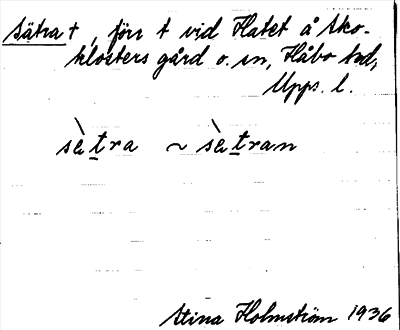 Sätra †, förr t vid Flatet å Sko-
klosters gård o. sn, Håbo hd,
Upps. l.
sè̀tra ~ sè̀tran
Stina Holmström 1936